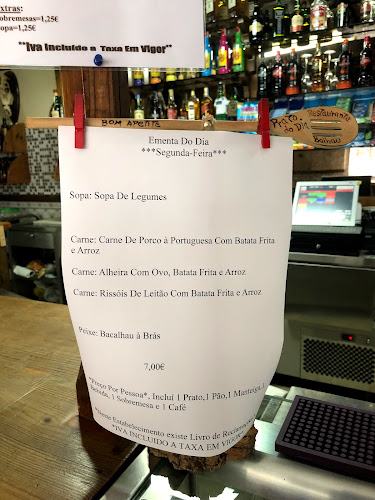 Extras:
obremesas=1,25€
opa=1,25€
**Iva Incluído a Taxa Em Vigor**
BOM APETITE
Prato
do Dia
Restaurante
Ementa Do Dia
***Segunda-Feira***
Sopa: Sopa De Legumes
Carne: Carne De Porco à Portuguesa Com Batata Frita
e Arroz
Carne: Alheira Com Ovo, Batata Frita e Arroz
Carne: Rissóis De Leitão Com Batata Frita e Arroz
Peixe: Bacalhau à Brás
7,00€
*Preço Por Pessoa*. Incluí 1 Prato,1 Pão,1 Manteiga,1
Bebida, 1 Sobremesa e 1 Café
*Neste Estabelecimento existe Livro de
*IVA INCLUIDO A TAXA EM VIGOR*